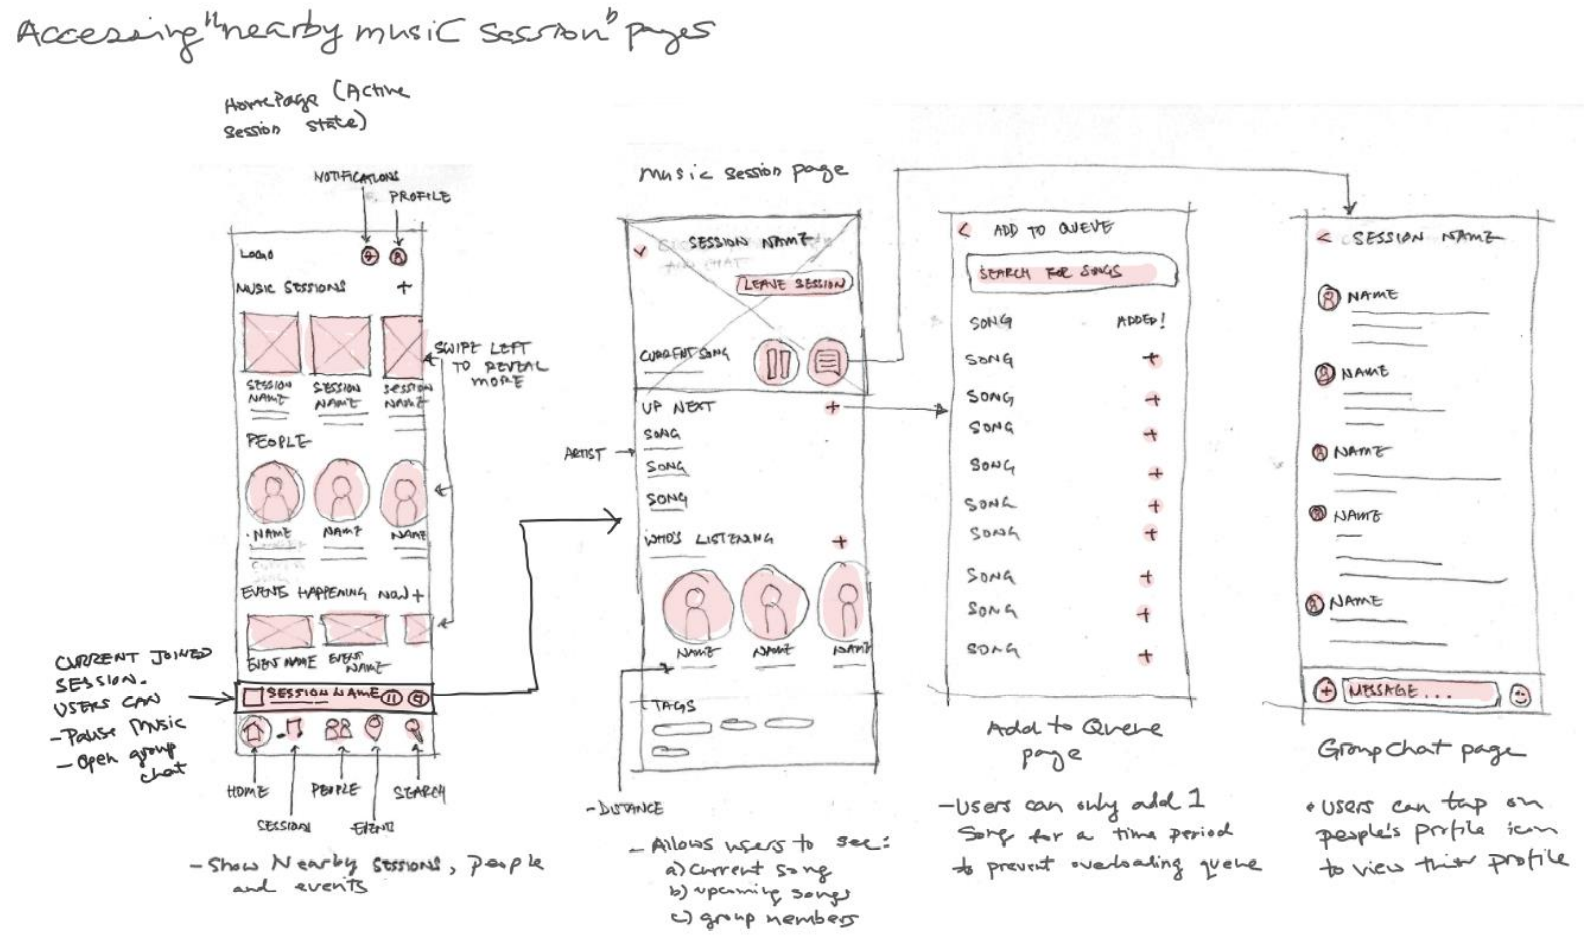 Accessing "nearby music session" pages
HomePage (Active
Session state)
NOTIFICATIONS
PROFILE
LOGO
MUSIC SESSIONS +
SWIPE LEFT
TO REVEAL
MORE
SESSION NAME
SESSION NAME
SESSION NAME
PEOPLE
NAME NAME NAME
EVENTS HAPPENING NOW +
EVENT NAME EVENT NAME
CURRENT JOINED
SESSION.
USERS CAN
- Pause Music
- Open group
chat
SESSION NAME
HOME PEOPLE SEARCH
SESSION EVENT
- Show Nearby sessions, people
and events
music session page
SESSION NAME
LEAVE SESSION
CURRENT SONG
UP NEXT +
SONG
ARTIST
SONG
SONG
WHO'S LISTENING +
NAME NAME NAME
TAGS
- DISTANCE
- Allows users to see:
a) current song
b) upcoming songs
c) group members
< ADD TO QUEUE
SEARCH FOR SONGS
SONG ADDED!
SONG +
SONG +
SONG +
SONG +
SONG +
SONG +
SONG +
SONG +
SONG +
Add to Queue
page
- Users can only add 1
song for a time period
to prevent overloading queue
< SESSION NAME
NAME
NAME
NAME
NAME
NAME
+ MESSAGE...
Group Chat page
• Users can tap on
people's profile icon
to view their profile